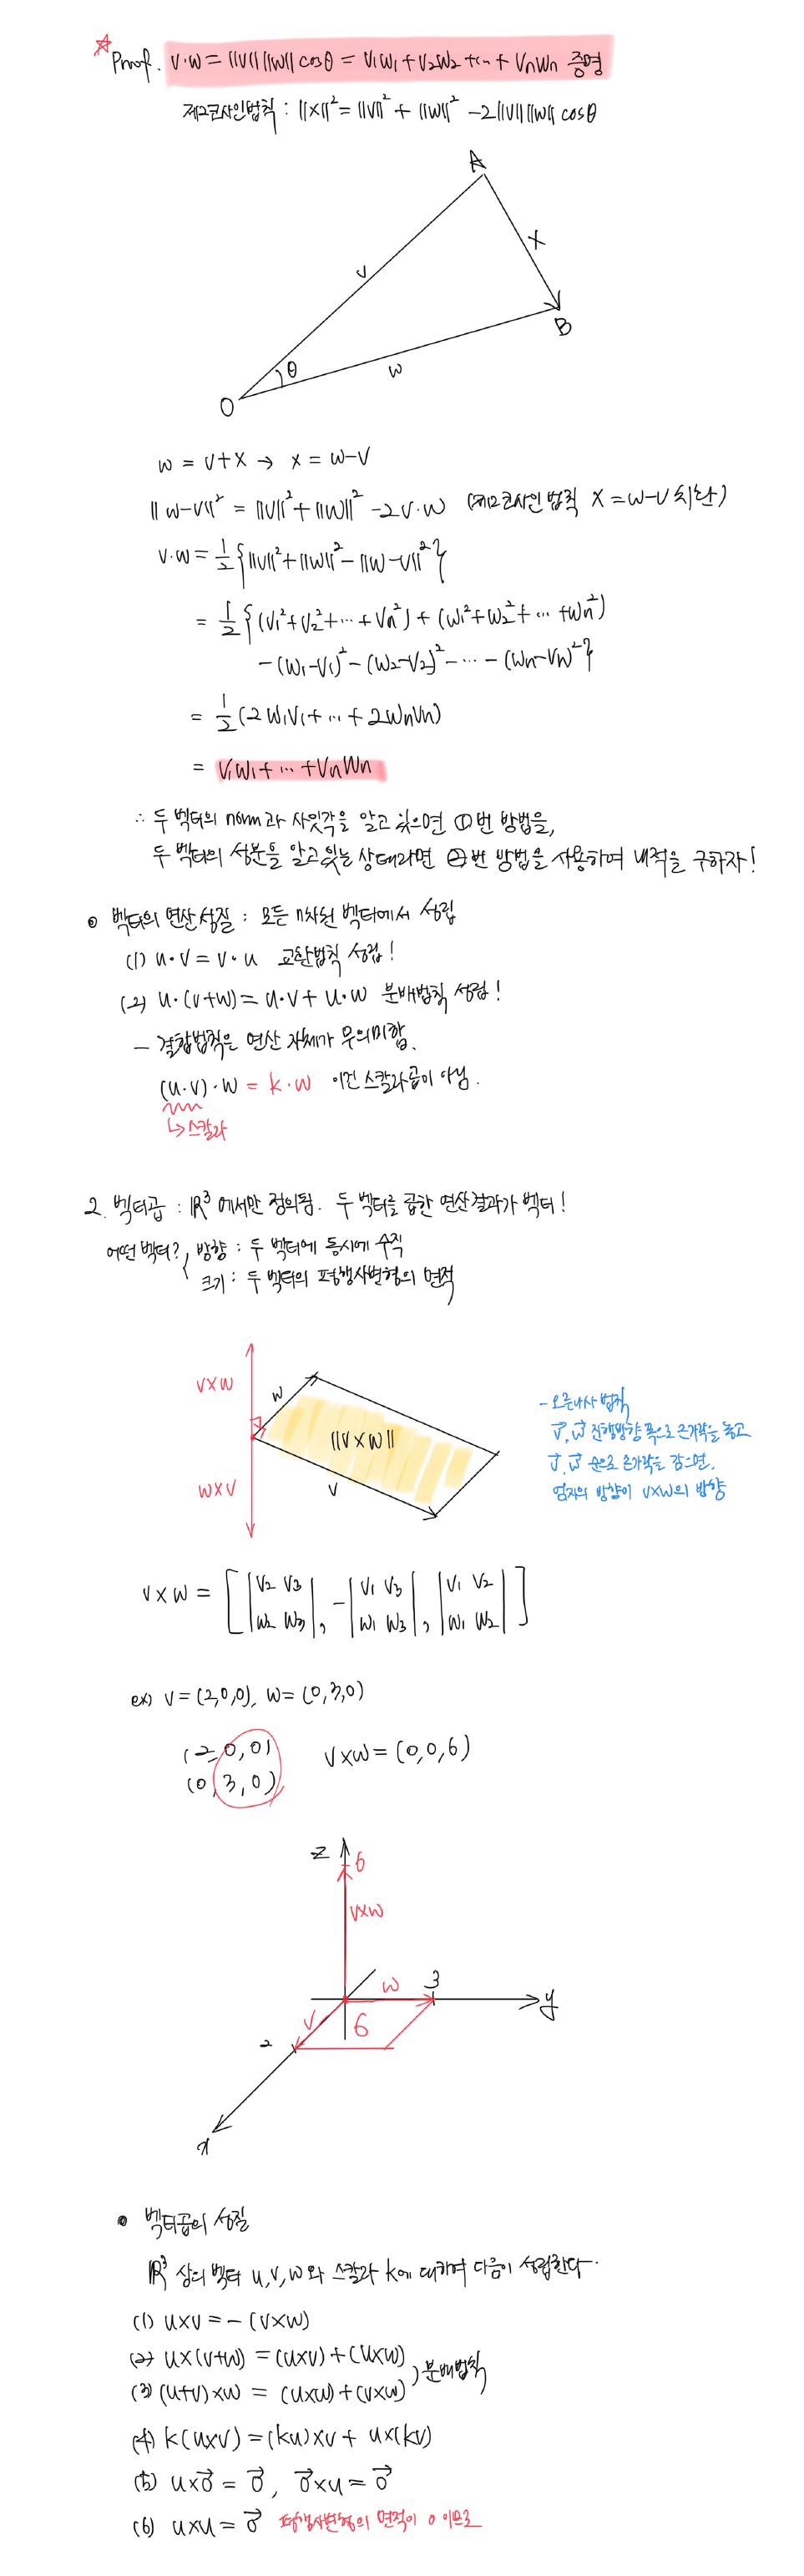 ☆ Proof. v·w = ||v|| ||w|| cosθ = v₁w₁ + v₂w₂ + … + vₙwₙ 증명
제2코사인법칙 : ||x||² = ||v||² + ||w||² - 2||v|| ||w|| cosθ
A
v
x
B
θ
w
O
w = v+x → x = w-v
||w-v||² = ||v||² + ||w||² - 2v·w (제2코사인법칙 x = w-v 치환)
v·w = 1/2 {||v||² + ||w||² - ||w-v||²}
= 1/2 {(v₁²+v₂²+…+vₙ²) + (w₁²+w₂²+…+wₙ²)
-(w₁-v₁)² -(w₂-v₂)² - … - (wₙ-vₙ)²}
= 1/2 (2w₁v₁+…+2wₙvₙ)
= v₁w₁+…+vₙwₙ
∴ 두 벡터의 norm과 사잇각을 알고 있으면 ①번 방법을,
두 벡터의 성분을 알고있는 상태라면 ②번 방법을 사용하여 내적을 구하자!
벡터의 연산성질 : 모든 n차원 벡터에서 성립
(1) u·v = v·u 교환법칙 성립!
(2) u·(v+w) = u·v + u·w 분배법칙 성립!
- 결합법칙은 연산 자체가 무의미함.
(u·v)·w = k·w 이건 스칼라곱이 아님.
↳ 스칼라
2. 벡터곱 : ℝ³에서만 정의됨. 두 벡터를 곱한 연산결과가 벡터!
어떤 벡터? 방향 : 두 벡터에 동시에 수직
크기 : 두 벡터의 평행사변형의 면적
v×w
w
||v×w||
w×v
v
- 오른나사 법칙
v⃗, w⃗ 진행방향 쪽으로 손가락을 놓고
v⃗, w⃗ 순으로 손가락을 감으면,
엄지의 방향이 v×w의 방향
v×w = [ |v₂ v₃|, -|v₁ v₃|, |v₁ v₂| ]
|w₂ w₃| |w₁ w₃| |w₁ w₂|
ex) v = (2,0,0), w = (0,3,0)
(2,0,0)
(0,3,0)
v×w = (0,0,6)
z
6
v×w
w
3
y
v
6
2
x
벡터곱의 성질
ℝ³ 상의 벡터 u,v,w와 스칼라 k에 대하여 다음이 성립한다.
(1) u×v = -(v×w)
(2) u×(v+w) = (u×v)+(u×w)
(3) (u+v)×w = (u×w)+(v×w)
) 분배법칙
(4) k(u×v) = (ku)×v + u×(kv)
(5) u×0⃗ = 0⃗, 0⃗×u = 0⃗
(6) u×u = 0⃗ 평행사변형의 면적이 0이므로